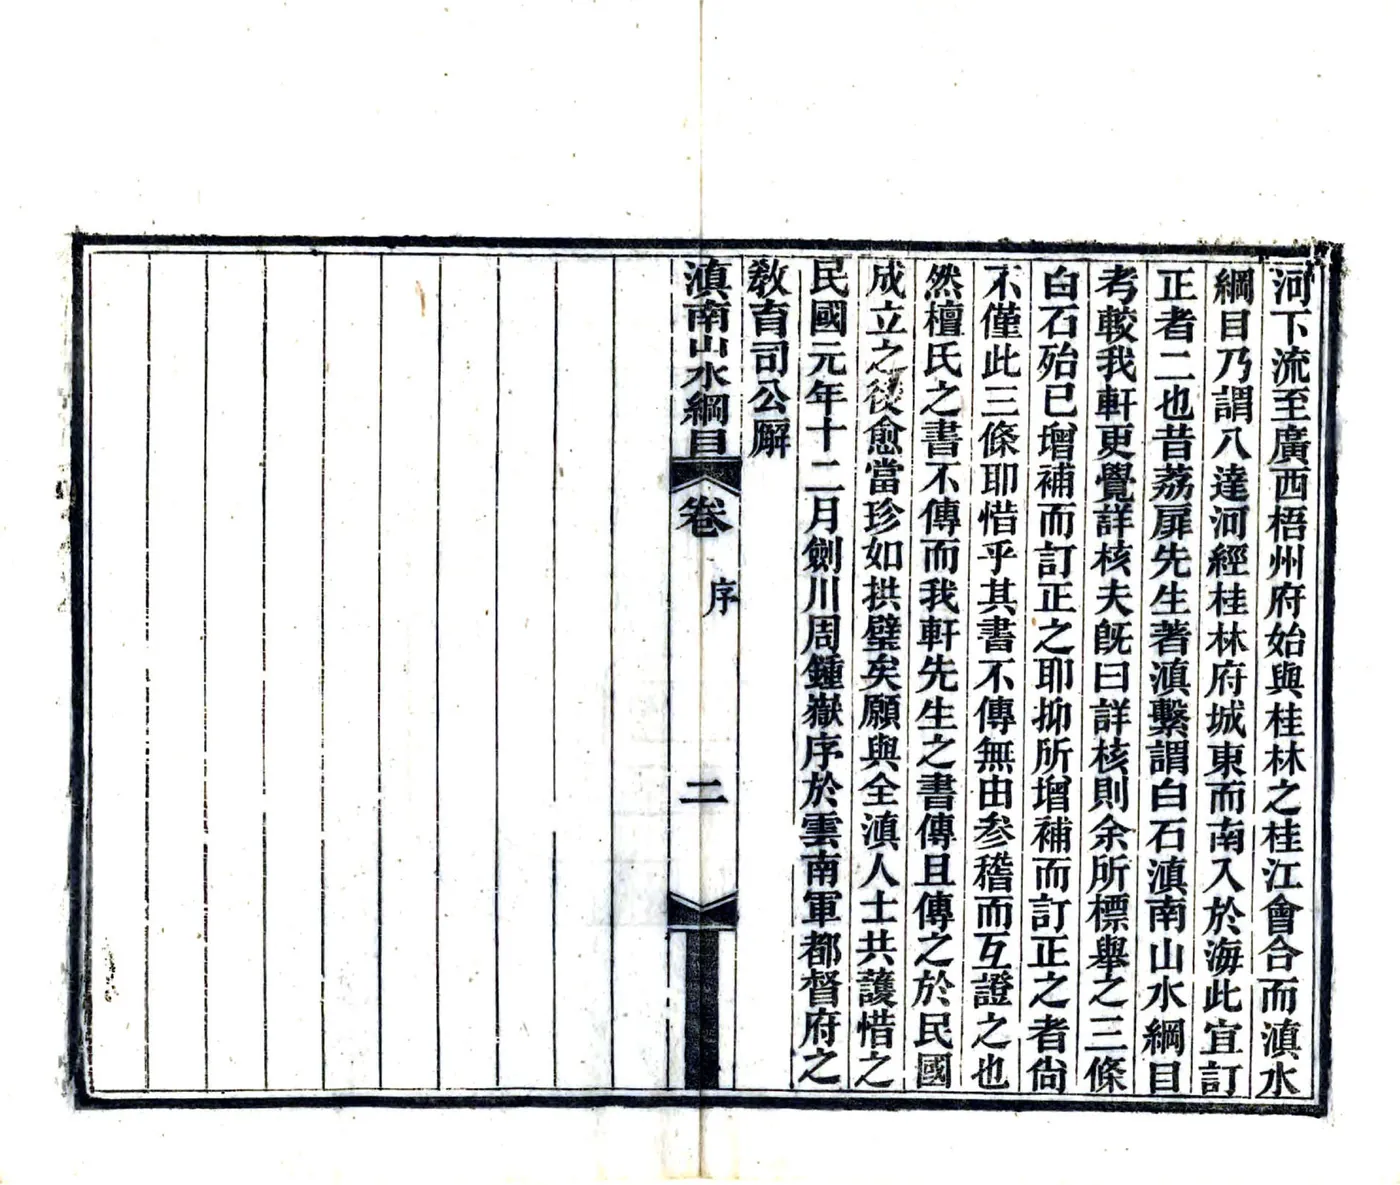 河下流至廣西梧州府始與桂林之桂江會合而滇水
綱目乃謂八達河經桂林府城東而南入於海此宜訂
正者二也昔荔扉先生著滇繫謂白石滇南山水綱目
考較我軒更覺詳核夫旣曰詳核則余所標舉之三條
白石殆已增補而訂正之耶抑所增補而訂正之者尙
不僅此三條耶惜乎其書不傳無由參稽而互證之也
然檀氏之書不傳而我軒先生之書傳且傳之於民國
成立之後愈當珍如拱璧矣願與全滇人士共護惜之
民國元年十二月劍川周鍾嶽序於雲南軍都督府之
敎育司公廨
滇南山水綱目 卷 序 二